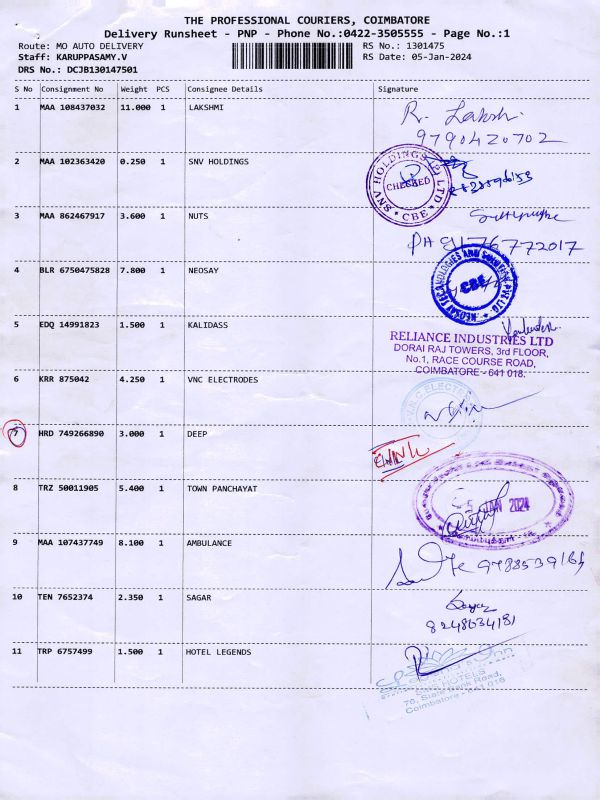 THE PROFESSIONAL COURIERS, COIMBATORE
Delivery Runsheet - PNP - Phone No.:0422-3505555 - Page No.:1
Route: MO AUTO DELIVERY RS No.: 1301475
Staff: KARUPPASAMY.V RS Date: 05-Jan-2024
DRS No.: DCJB130147501
S No Consignment No Weight PCS Consignee Details Signature
1 MAA 108437032 11.000 1 LAKSHMI R. Laksh.
9790420702
2 MAA 102363420 0.250 1 SNV HOLDINGS
SNV HOLDINGS (P) LTD
CHECKED
* CBE *
3 MAA 862467917 3.600 1 NUTS
PH 9176772017
4 BLR 6750475828 7.800 1 NEOSAY
CBE
5 EDQ 14991823 1.500 1 KALIDASS
RELIANCE INDUSTRIES LTD
DORAI RAJ TOWERS, 3rd FLOOR,
No.1, RACE COURSE ROAD,
COIMBATORE - 641 018.
6 KRR 875042 4.250 1 VNC ELECTRODES
7 HRD 749266890 3.000 1 DEEP
8 TRZ 50011905 5.400 1 TOWN PANCHAYAT
5 JAN 2024
9 MAA 107437749 8.100 1 AMBULANCE
10 TEN 7652374 2.350 1 SAGAR
8248634181
11 TRP 6757499 1.500 1 HOTEL LEGENDS
Inn
HOTELS
76, State Bank Road,
Coimbatore - 641 018